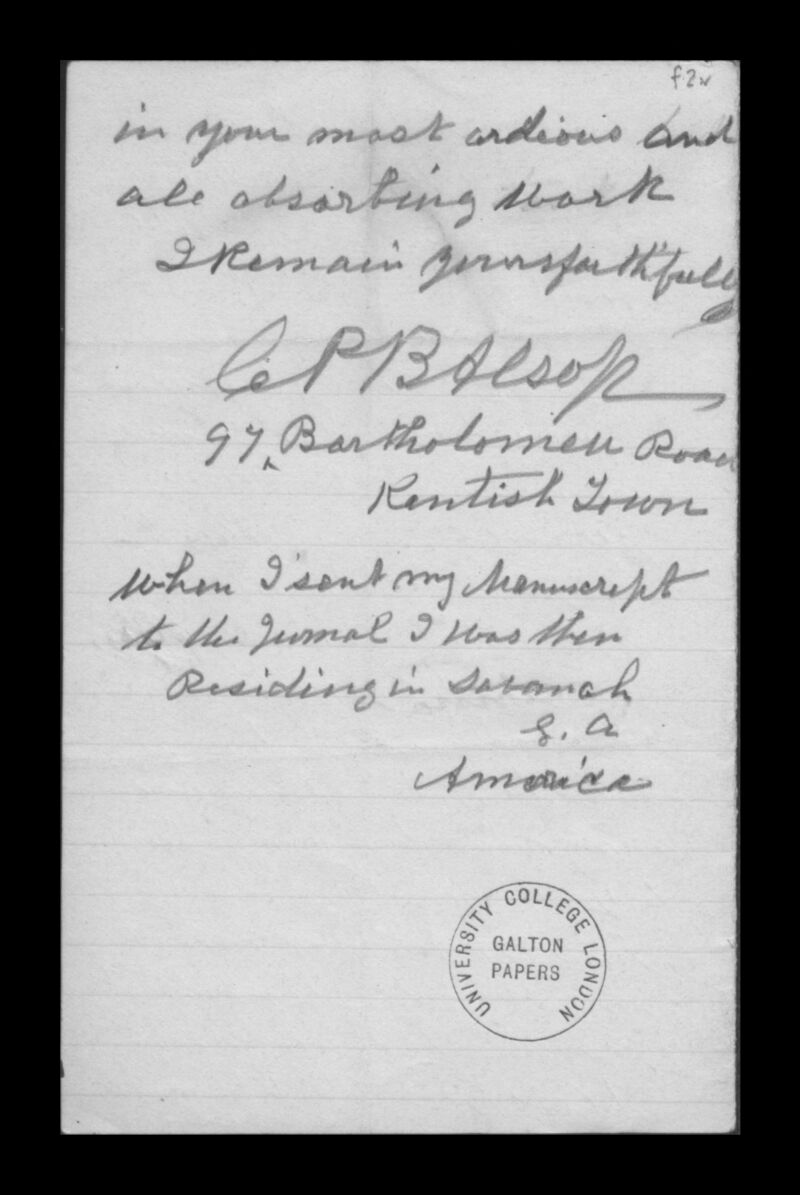 f.2v
in your most ardious and
all absorbing Work
I Remain yours faithfully
C P B Alsop
97, Bartholomew Road
Kentish Town
When I sent my Manuscript
to the Jurnal I Was then
Residing in Savanah
G. A
America
UNIVERSITY COLLEGE LONDON
GALTON
PAPERS